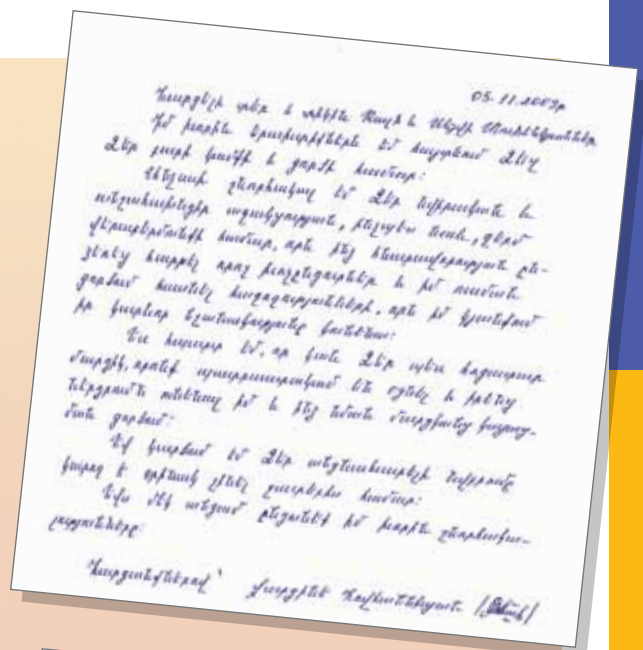 05.11.2009թ
Հարգելի տեր և տիկին
Իմ խորին երախտիքներն եմ հայտնում Ձեզ
Ձեր բարի կամքի և գործի համար:
Անչափ շնորհակալ եմ Ձեր նվիրական և
օգնության, ինչպես նաև, ջերմ
վերաբերմունքի համար, որն ինձ հնարավորություն ըն-
ձեռեց հաղթել որոշ խոչընդոտներ և իմ ուսման
գործում հասնել հաջողությունների, որն իմ կյանքում
իր կարևոր նշանակությունը կունենա:
Ես հպարտ եմ, որ կան Ձեր պես հայասեր
մարդիկ, որոնք պատրաստակամ են օգնել և իրենց
ներդրումն ունենալ իմ և ինձ նման մարդկանց կայաց-
ման գործում:
Եվ կարծում եմ Ձեր նվիրումը
կարող է օրինակ լինել շատերիս համար:
Եվս մեկ անգամ ընդունեք իմ խորին շնորհակա-
լությունները:
Հարգանքներով՝